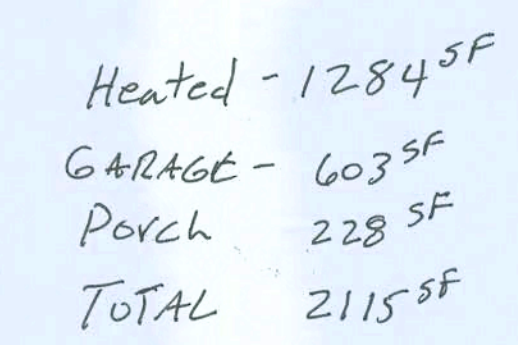 Heated - 1284 SF
GARAGE - 603 SF
Porch 228 SF
TOTAL 2115 SF